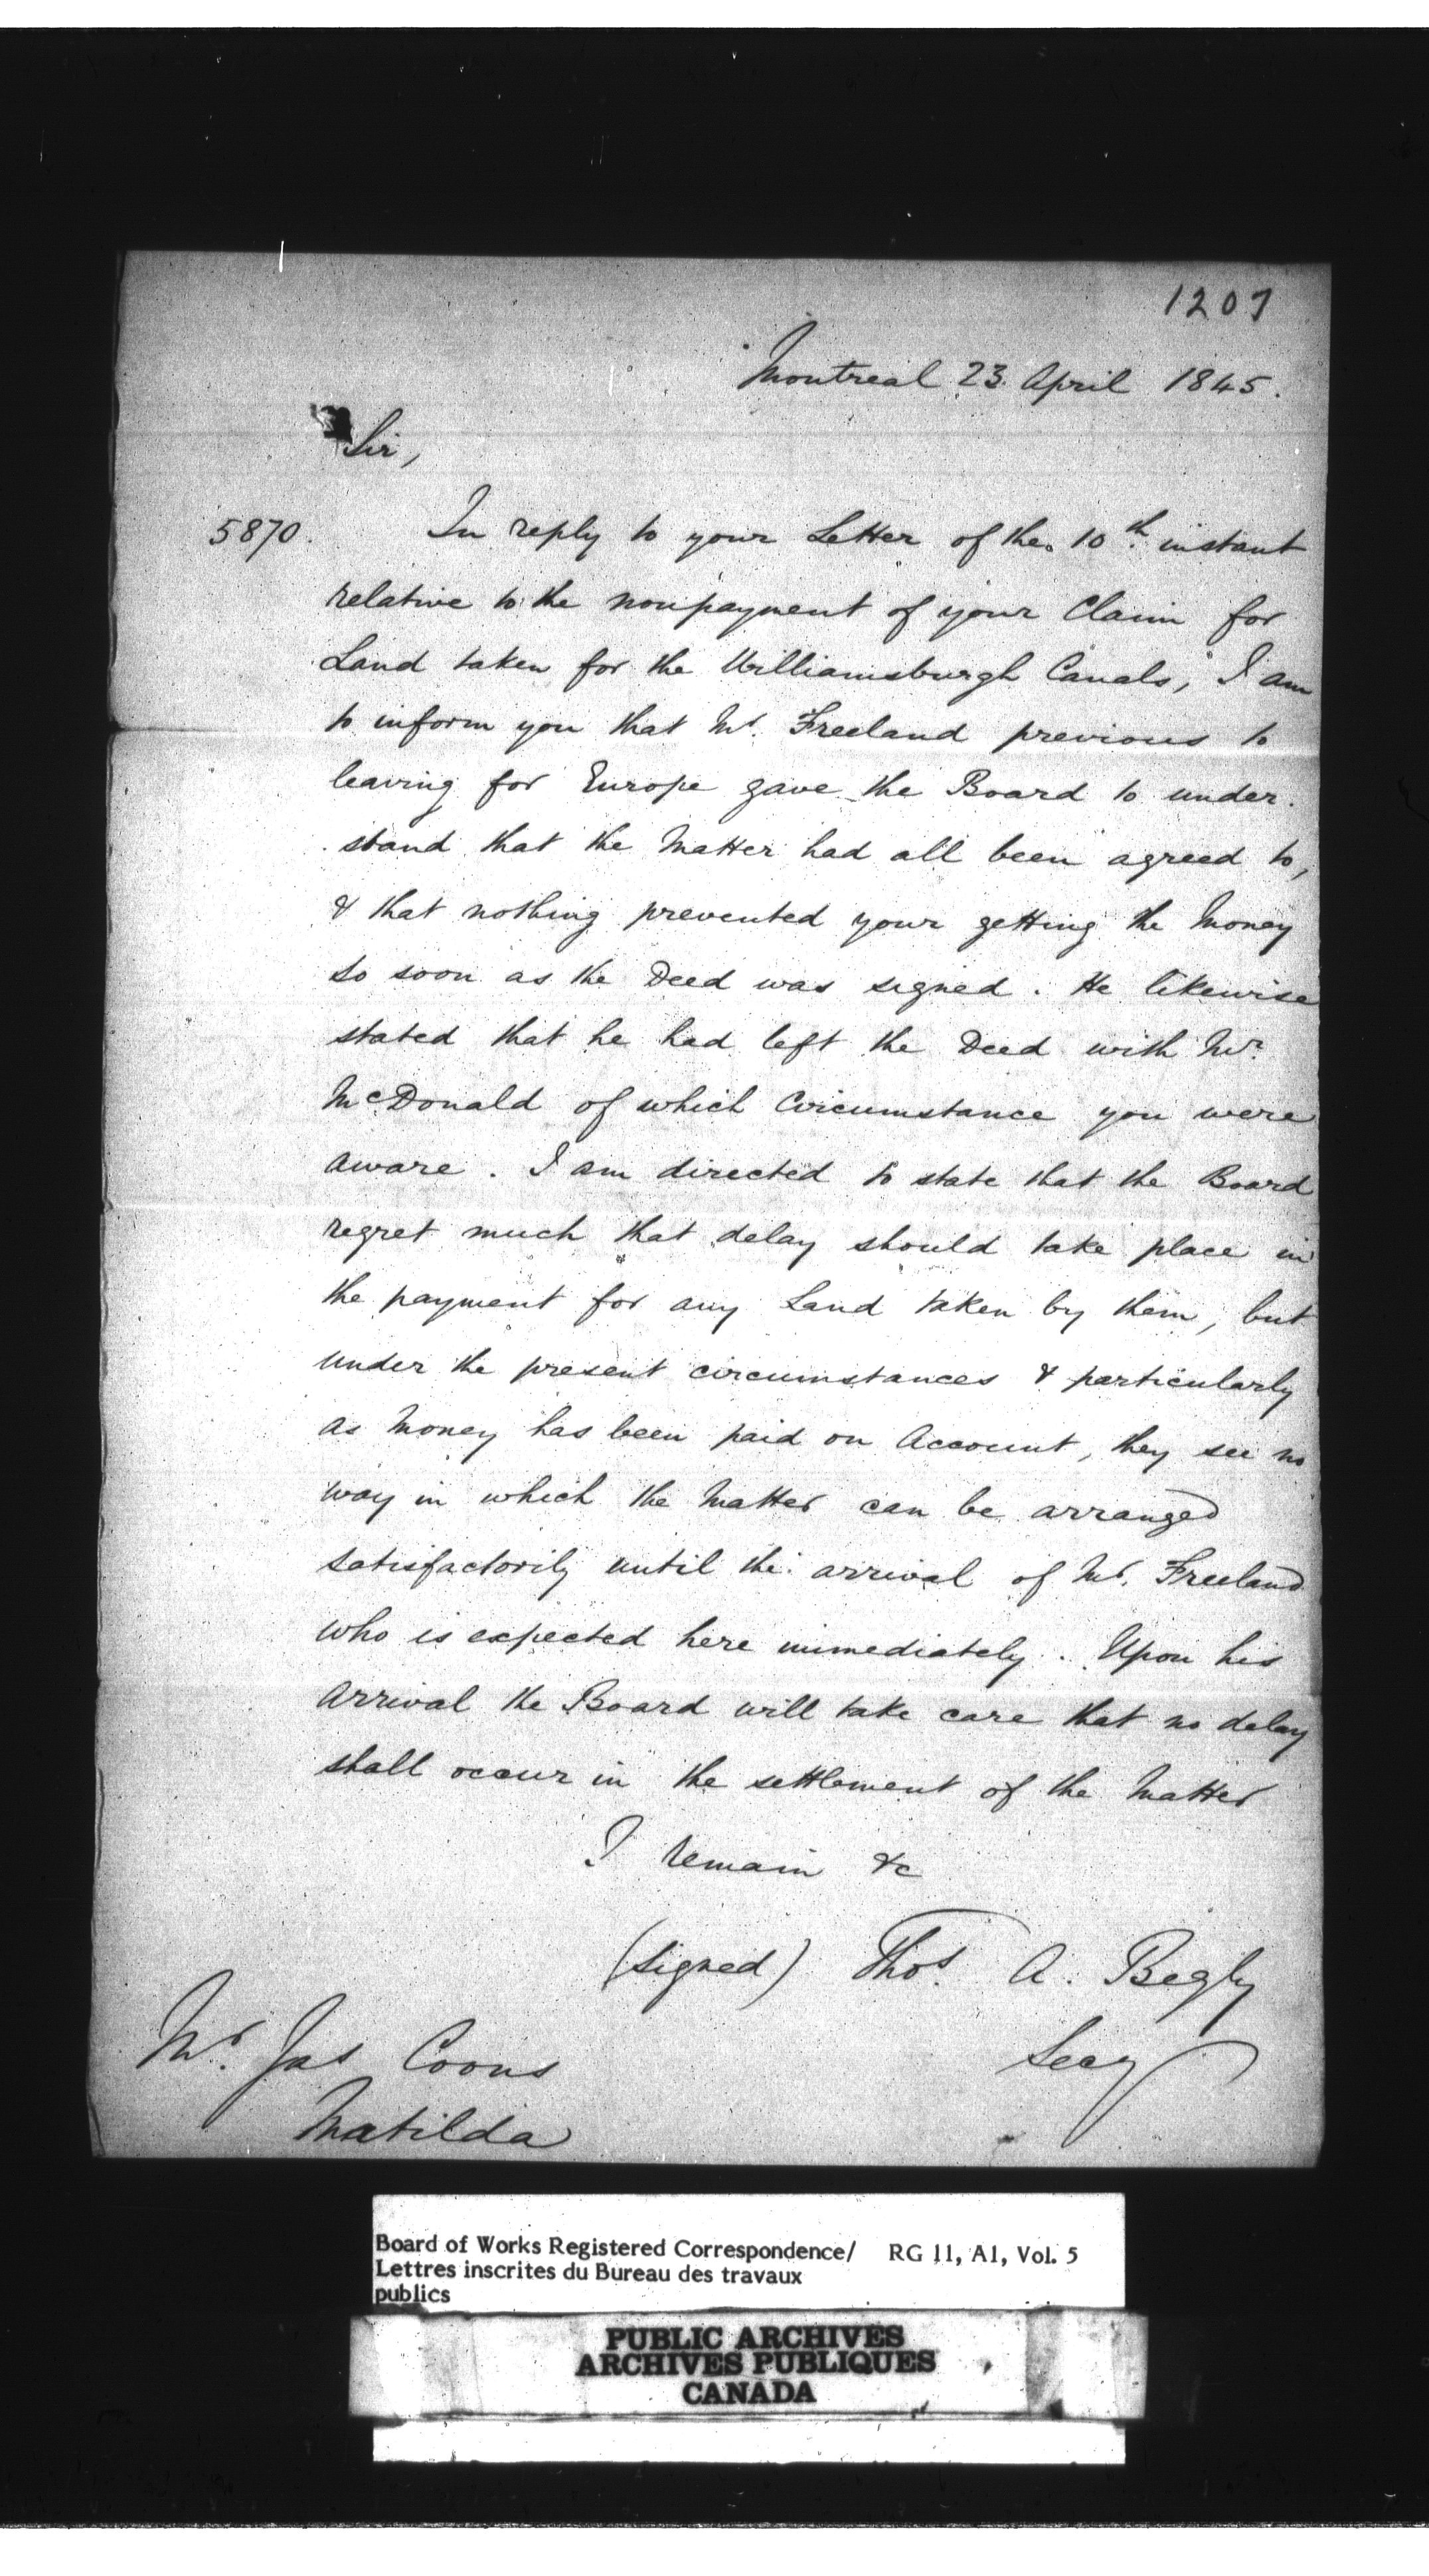 1207
Montreal 23 April 1845.
Sir,
5870. In reply to your Letter of the 10th instant
relative to the nonpayment of your Claim for
Land taken for the Williamsburgh Canals, I am
to inform you that Mr. Freeland previous to
leaving for Europe gave the Board to under-
stand that the Matter had all been agreed to,
& that nothing prevented your getting the Money
so soon as the Deed was signed. He likewise
stated that he had left the Deed with Mr.
McDonald of which Circumstance you were
aware. I am directed to state that the Board
regret much that delay should take place in
the payment for any Land taken by them, but
under the present circumstances & particularly
as Money has been paid on Account, they see no
way in which the Matter can be arranged
satisfactorily until the arrival of Mr. Freeland
who is expected here immediately. Upon his
arrival the Board will take care that no delay
shall occur in the settlement of the Matter
I remain &c
(signed) Thos. A. Begly
Secy
Mr. Jas Coons
Matilda
Board of Works Registered Correspondence/ RG 11, A1, Vol. 5
Lettres inscrites du Bureau des travaux
publics
PUBLIC ARCHIVES
ARCHIVES PUBLIQUES
CANADA